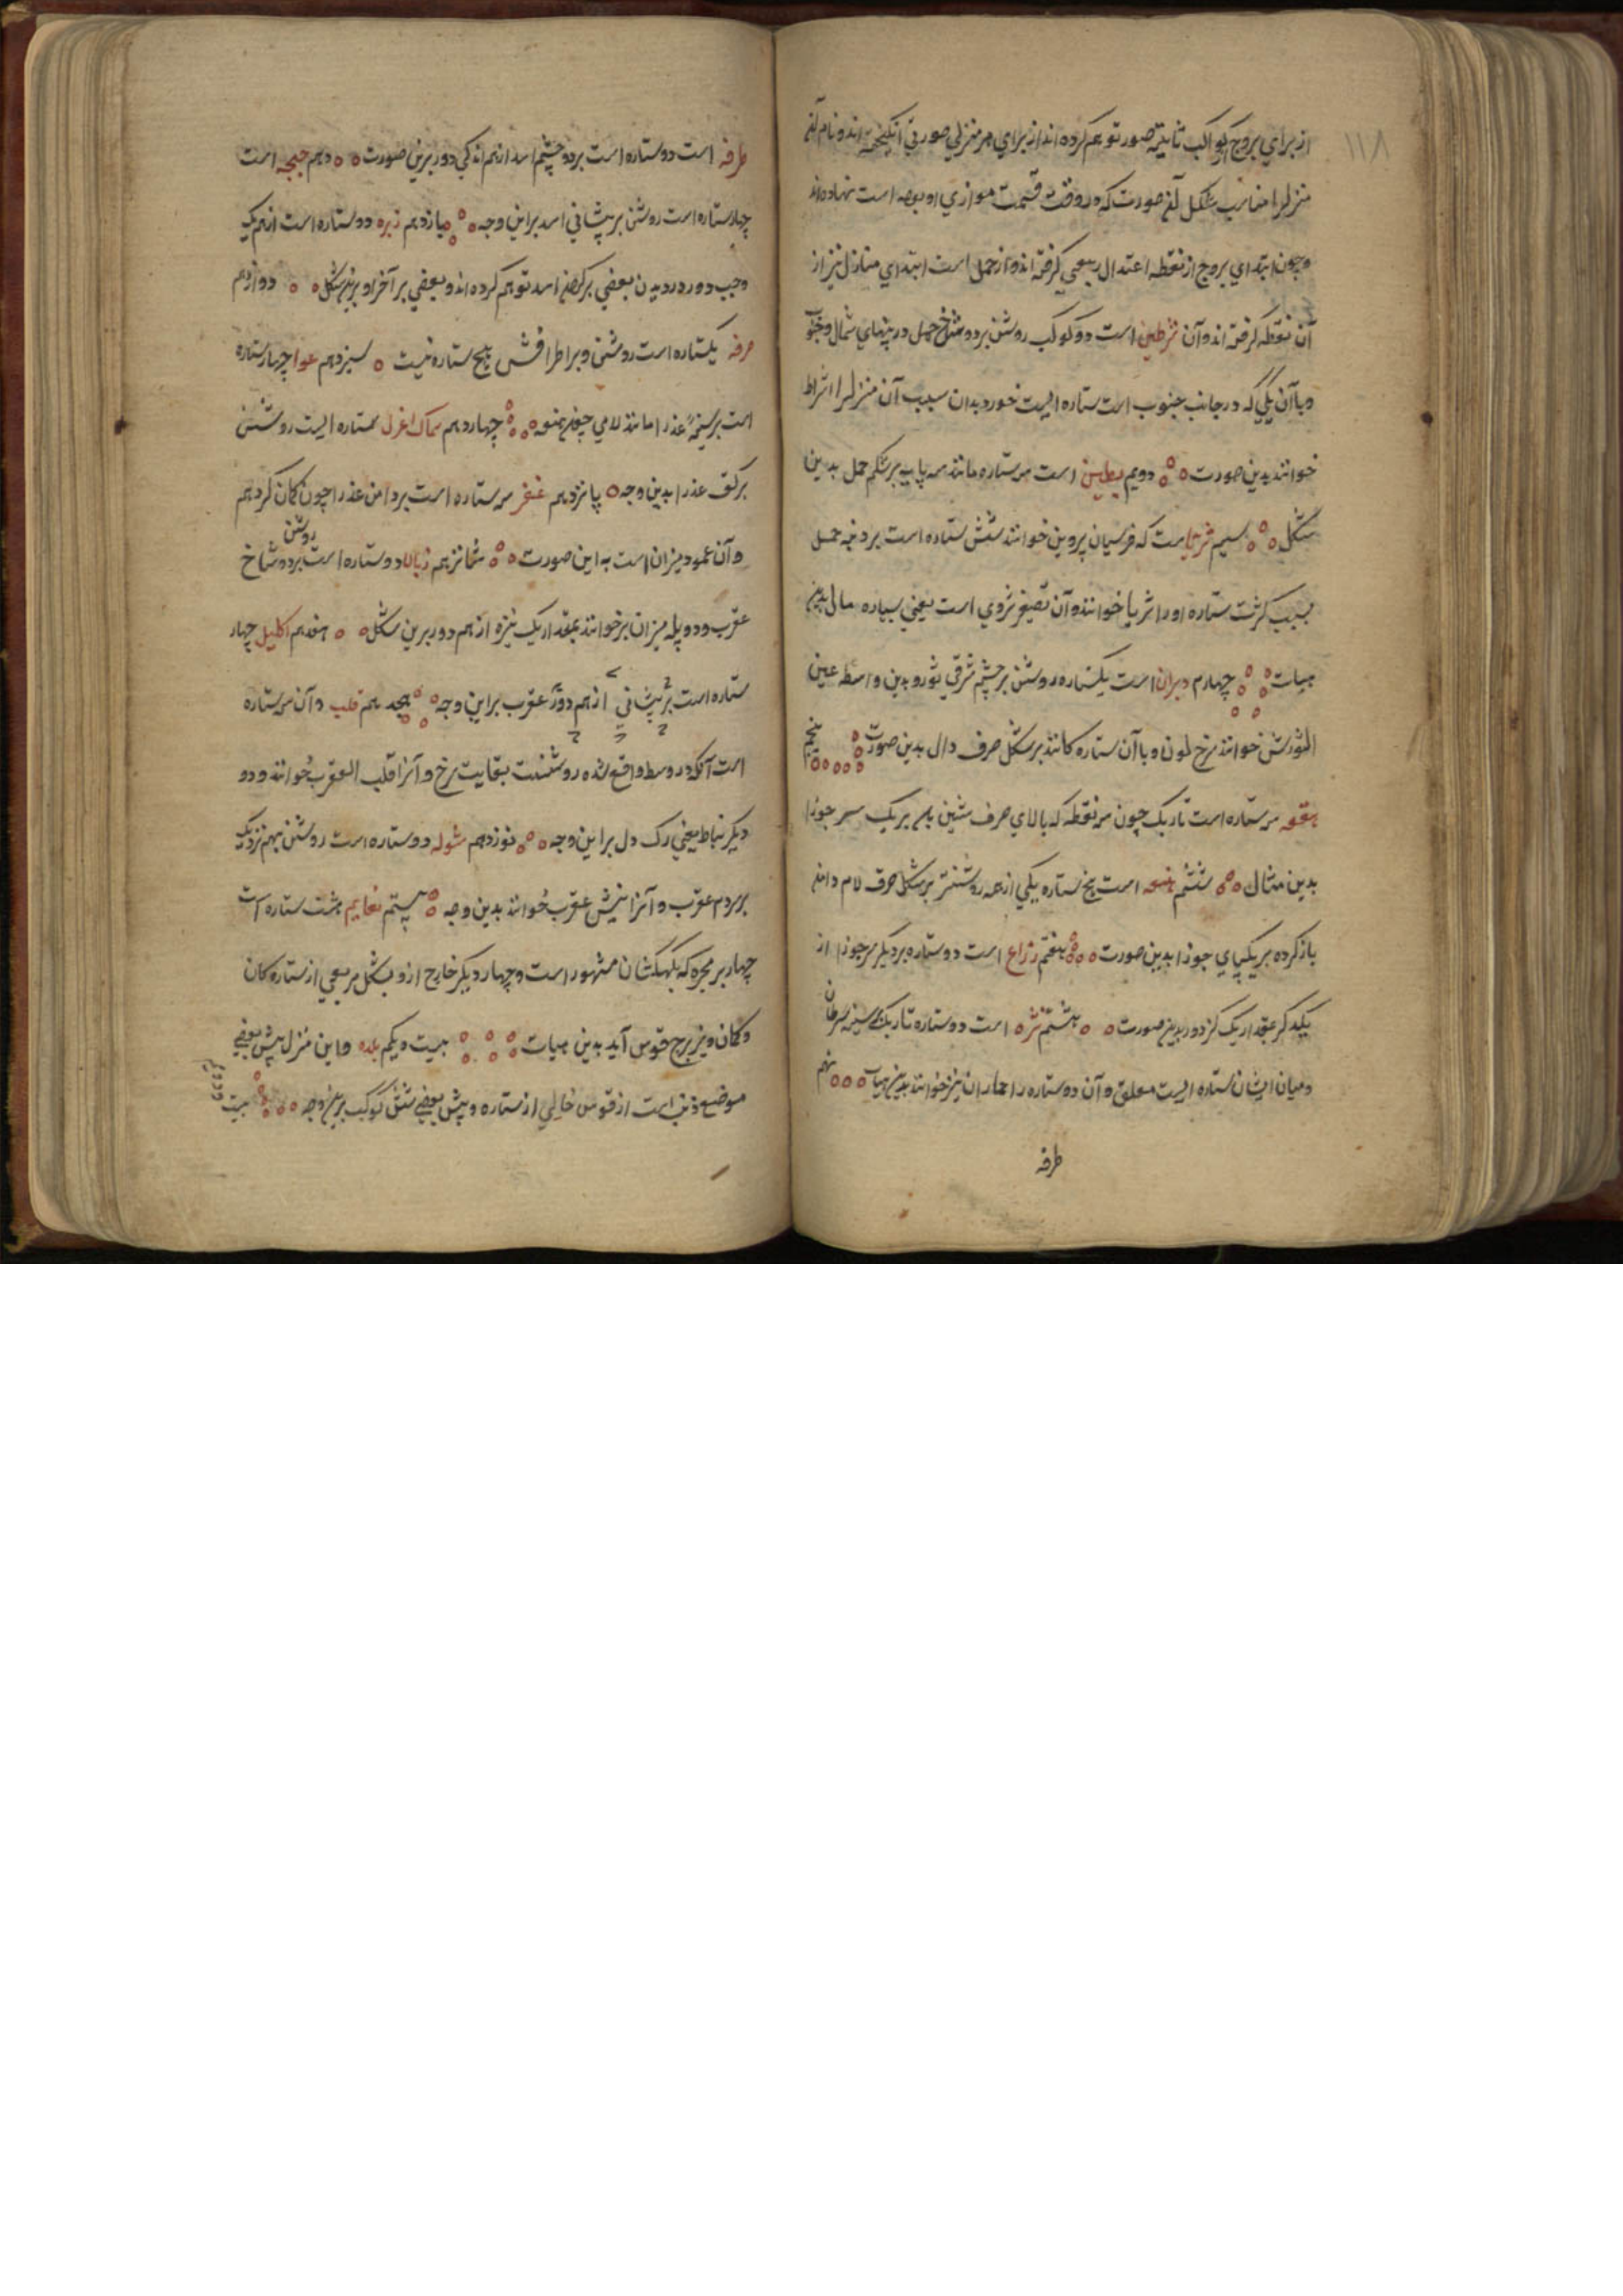 ۱۱۸
از برای بروج کواکب ثابته صور توهم کرده اند از برای هر منزلی صورتی انگیخته اند و نام آن
منزل را مناسب شکل آن صورت که در وقت قسمت موازی او بوده است نهاده اند
و چون ابتدای بروج از نقطه اعتدال ربیعی گرفته اند و از حمل است ابتدای منازل نیز از
آن نقطه گرفته اند و آن شرطین است دو کوکب روشن بر دو شاخ حمل در پهنای شمال و جنوب
و با آن یکی که در جانب جنوب است ستاره ایست خورد بدان سبب آن منزل را اشراط
خوانند بدین صورت دویم بطین است سه ستاره مانند سه پایه بر شکم حمل بدین
شکل سیم ثریا است که فرسیان پروین خوانند شش ستاره است بر دنبه حمل
بسبب کثرت ستاره او را ثریا خوانند و آن تصغیر ثروی است یعنی بسیاره مال بدین
هیات چهارم دبران است یکستاره روشن بر چشم شرقی ثور و بدین واسطه عین
الثورش خوانند سرخ لون و با آن ستاره کانند بر شکل حرف دال بدین صورت پنجم
هقعه سه ستاره است تاریک چون سه نقطه که بالای حرف شین بر یک سر جوزا
بدین مثال ششم هنعه است پنج ستاره یکی از همه روشنتر بر شکل حرف لام دامن
باز کرده بر یکپای جوزا بدین صورت هفتم ذراع است دو ستاره بر دیگر سر جوزا از
یکدکر بمقدار یک گز دور بدین صورت هشتم نثره است دو ستاره تاریک بر سینه سرطان
و میان ایشان ستاره ایست معلق و آن دو ستاره را حماران نیز خوانند بدین هیات نهم
طرفه
طرفه است دو ستاره است بر دو چشم اسد از هم اندکی دور برین صورت دهم جبهه است
چهار ستاره است روشن بر پیشانی اسد براین وجه یازدهم زبره دو ستاره است از هم یک
وجب دور در دیدن بعضی بر کتف اسد توهم کرده اند و بعضی بر آخر او برین شکل دوازدهم
صرفه یکستاره است روشن و بر اطرافش هیچ ستاره نیست سیزدهم عوا چهار ستاره
است بر سینه عذرا مانند لامی چهاردهم سماک اعزل ستاره ایست روشن
بر کتف عذرا بدین وجه پانزدهم غفر سه ستاره است بر دامن عذرا چون کمان کردهم
روشن
و آن عمود میزان است به این صورت شانزدهم زبانا دو ستاره است بر دو شاخ
عقرب و دو پله میزان بر خوانند بمقدار یک نیزه از هم دور برین شکل هفدهم اکلیل چهار
ستاره است بر پیشانی از هم دور عقرب براین وجه هیجدهم قلب و آن سه ستاره
است آنکه در وسط واقع شده روشنست بغایت سرخ و آنرا قلب العقرب خوانند و دو
دیگر نیاط یعنی رک دل براین وجه نوزدهم شوله دو ستاره است روشن بهم نزدیک
بر دم عقرب و آنرا نیش عقرب خوانند بدین وجه بیستم نعایم هشت ستاره است
چهار بر مجره که بکهکشان مشهور است و چهار دیگر خارج ازو بشکل مربعی از ستاره کان
و کمان و تیر برج قوس آید بدین هیات بیست و یکم بلده و این منزل پیش بعضی
موضع ذنب است از قوس خالی از ستاره و پیش بعضی شش کوکب برین وجه بیست